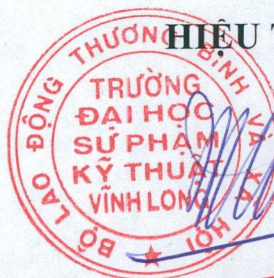 HIỆU T
BỘ LAO ĐỘNG THƯƠNG BINH VÀ XÃ HỘI
TRƯỜNG
ĐẠI HỌC
SƯ PHẠM
KỸ THUẬT
VĨNH LONG